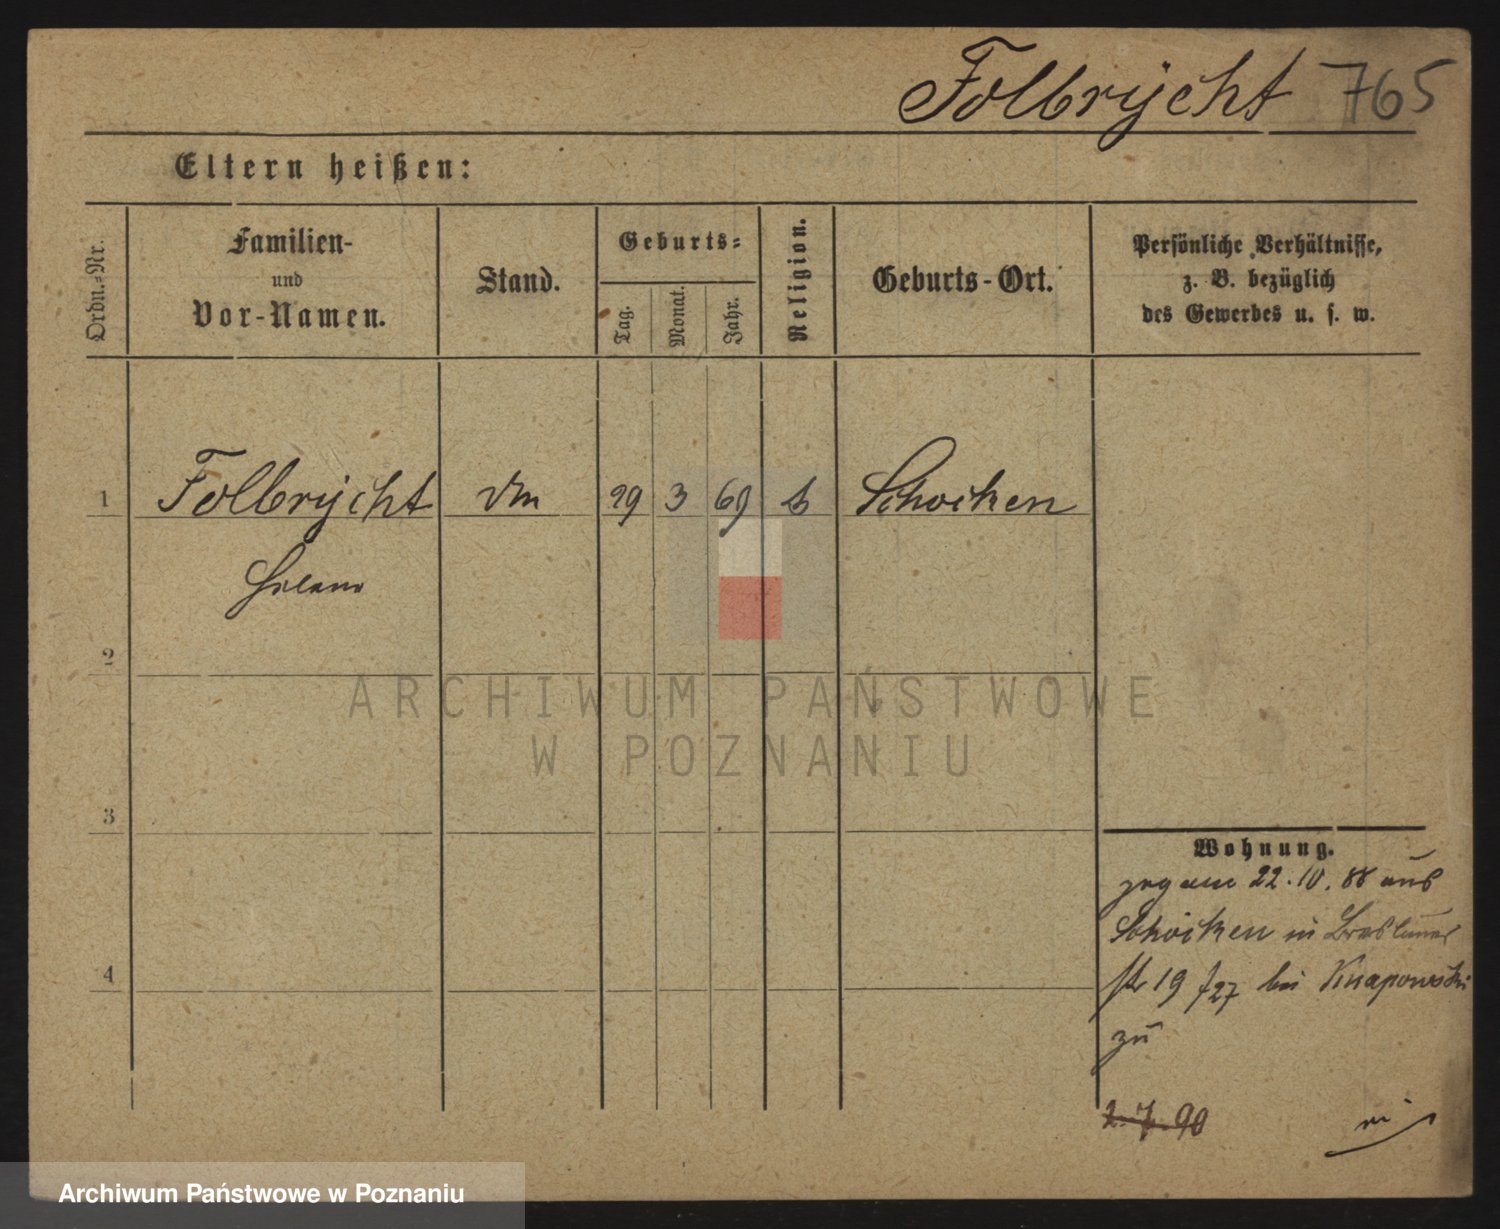 Folbrycht 765
Eltern heißen:
Ordn.-Nr.
Familien-
und
Vor-Namen.
Stand.
Geburts-
Tag.
Monat.
Jahr.
Religion.
Geburts-Ort.
Persönliche Verhältnisse,
z. B. bezüglich
des Gewerbes u. s. w.
1 Folbrycht 29 3 69 Schocken
Helene
2
ARCHIWUM PAŃSTWOWE
W POZNANIU
3
Wohnung.
zog am 22.10.88 aus
Schocken in Breslauer
str 19 bei Knapowski
zu
4
2.7.90
Archiwum Państwowe w Poznaniu